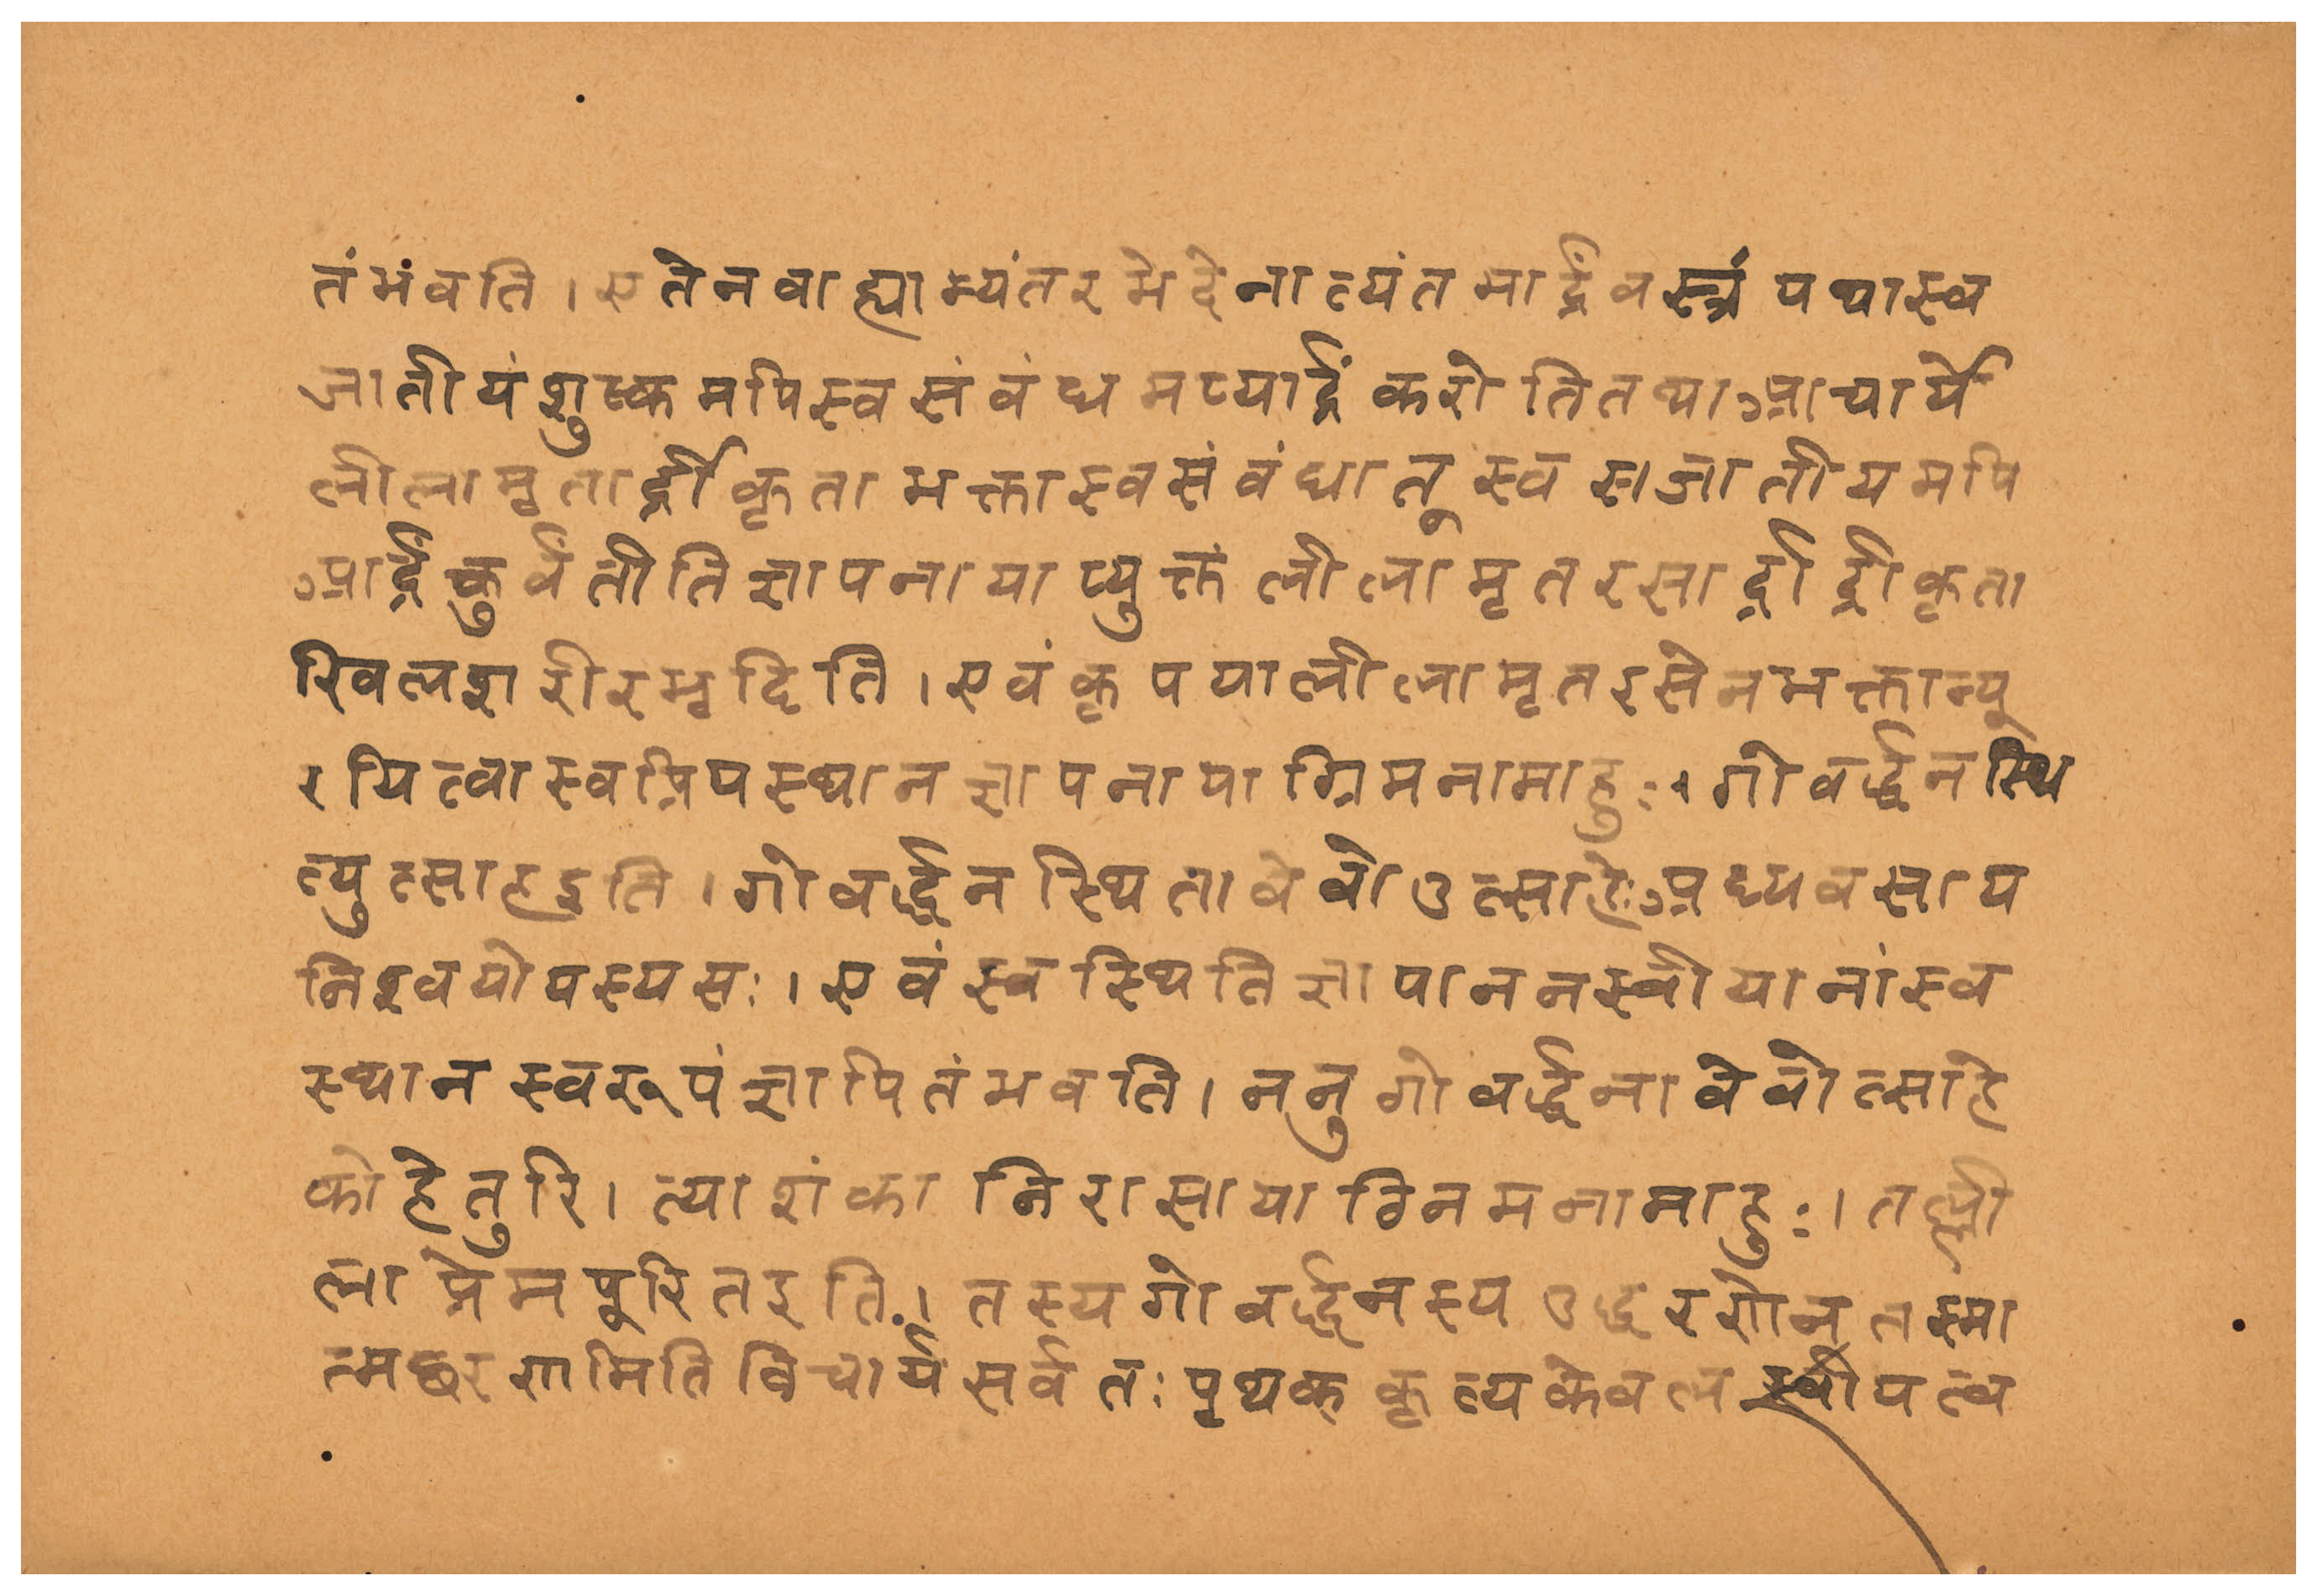 तंभंवति । एतेनवाह्याभ्यंतरभेदेनात्यंतमार्द्रंवस्त्रंयथास्व
जातीयंशुष्कमपिस्वसंवंधमप्यार्द्रंकरोतितथाआचार्ये
लीलामृतार्द्रीकृताभक्तास्वसंवंधात्तुस्वसजातीयमपि
आर्द्रंकुर्वंतीतिज्ञापनायाप्युक्तंलीलामृतरसार्द्रार्द्रीकृता
खिलशरीरभृदिति । एवंकृपयालीलामृतरसेनभक्तान्पू
रयित्वास्वप्रियस्थानज्ञापनायाग्रिमनामाहुः । गोवर्द्धनस्थि
त्युत्साहइति । गोवर्द्धनस्थितावेवोउत्साहेःअध्यवसाय
निश्वयोयस्यसः । एवंस्वस्थितिज्ञापाननस्वीयानांस्व
स्थानस्वरूपंज्ञापितंभवति । ननुगोवर्द्धनावेवोत्साहे
कोहेतुरि । त्याशंकानिरासायाग्रिनमनामाहुः । तल्ली
लाप्रेमपूरितइति । तस्यगोवर्द्धनस्यउद्धरणेनतस्मा
त्मछरणमितिविचार्यसर्वतःपृथक्कृत्यकेवलस्वीयत्व